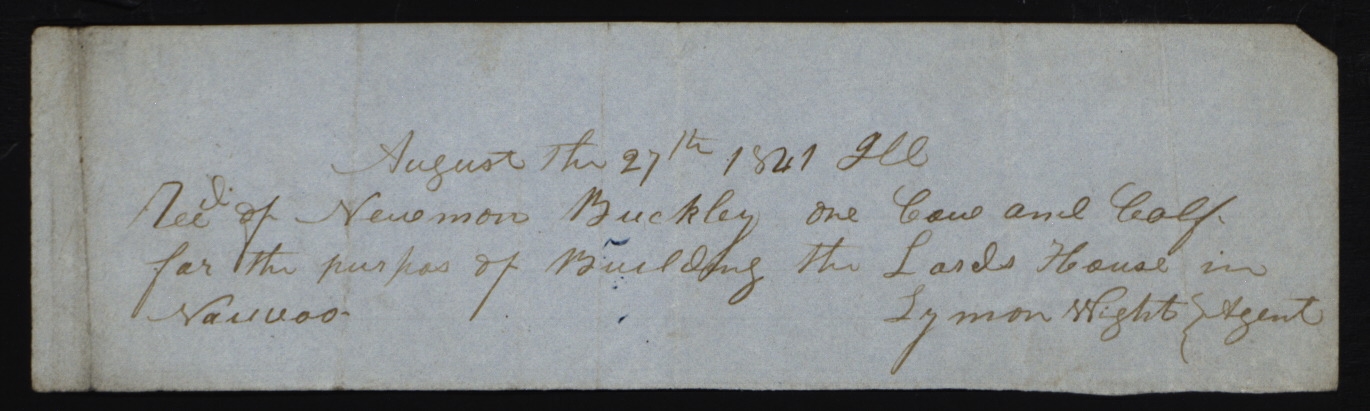 August the 27th 1841 Ill
Recd. of Newmon Buckley one Cow and Calf
for the purpos of Building the Lords House in
Nauvoo
Lymon Wight } Agent